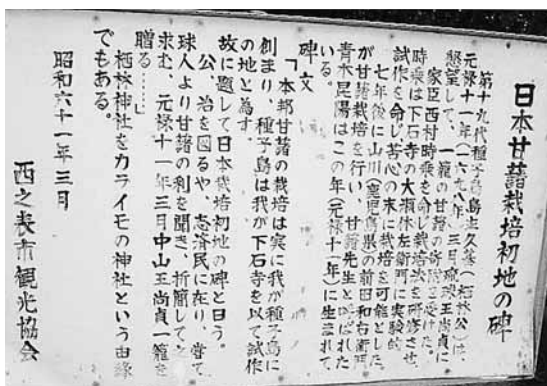 日本甘藷栽培初地の碑
第十九代種子島島主久基(栖林公)は、
元禄十一年(一六九八年)三月琉球王尚貞に
懇望して、一籠の甘藷の寄贈を受けた。
家臣西村時乗を命じ栽培法を研修させ、
時乗は下石寺の大瀬休左衛門に実験的
試作を命じ苦心の末に栽培を可能とした。
七年後に山川(鹿児島県の前田利右衛門
が甘藷栽培を行い、甘藷先生と呼ばれた
青木昆陽はこの年(元禄十一年)に生まれて
いる。
碑文
「本邦甘藷の栽培は実に我が種子島に
創まり、種子島は我が下石寺を以て試作
の地と為す。
故に題して日本栽培初地の碑と曰う。
公、治を図るや、志済民に在り、嘗て
球人より甘藷の利を聞き、祈願して之
求む、元禄十一年三月中山王尚貞一籠を
贈る……」
栖林神社をカライモの神社という由縁
でもある。
昭和六十一年三月
西之表市観光協会